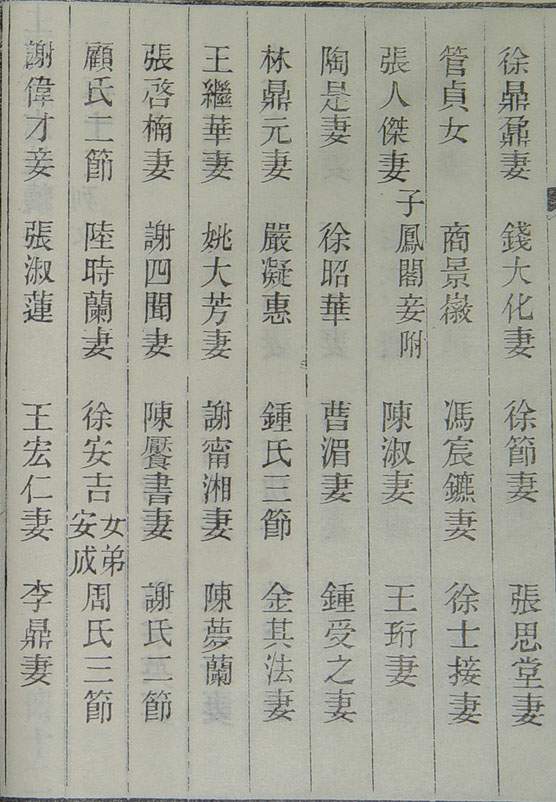 徐鼎鼐妻 錢大化妻 徐節妻 張思堂妻
管貞女 商景徽 馮宸鑣妻 徐士接妻
張人傑妻子鳳閣妾附 陳淑妻 王珩妻
陶是妻 徐昭華 曹湄妻 鍾受之妻
林鼎元妻 嚴凝惠 鍾氏三節 金其法妻
王繼華妻 姚大芳妻 謝甯湘妻 陳夢蘭
張啓楠妻 謝四聞妻 陳饜書妻 謝氏二節
顧氏二節 陸時蘭妻 徐安吉女弟安成 周氏三節
謝偉才妾 張淑蓮 王宏仁妻 李鼎妻